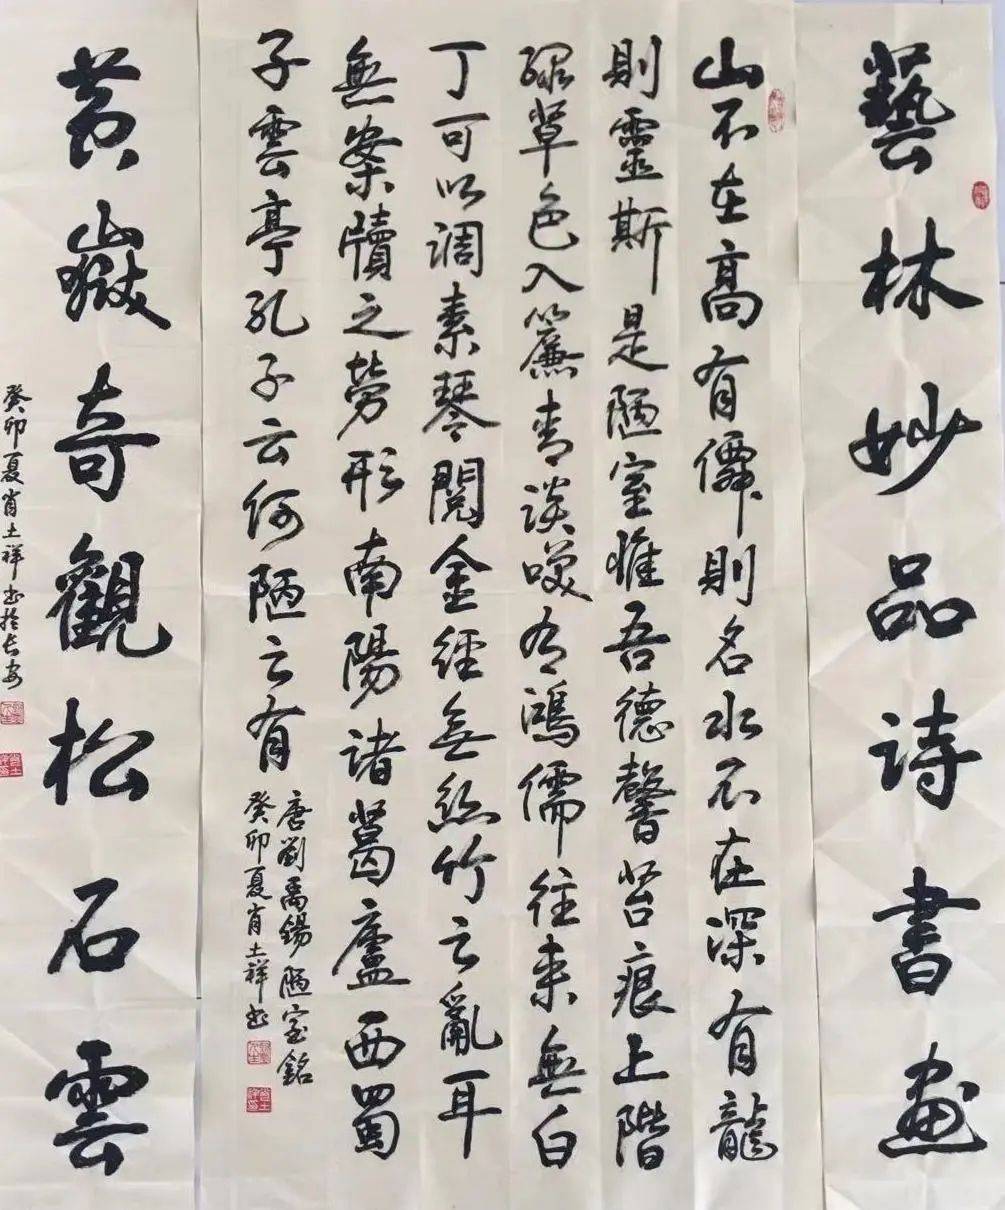 藝林妙品诗書画
山不在高有僊則名水不在深有龍
則靈斯是陋室惟吾德馨苔痕上階
緑草色入簾青談咲有鴻儒往来無白
丁可以调素琴閲金經無絲竹之亂耳
無案牘之勞形南陽諸葛廬西蜀
子雲亭孔子云何陋之有
唐劉禹錫陋室銘
癸卯夏肖土祥书
黄嶽奇觀松石雲
癸卯夏肖土祥书於长安